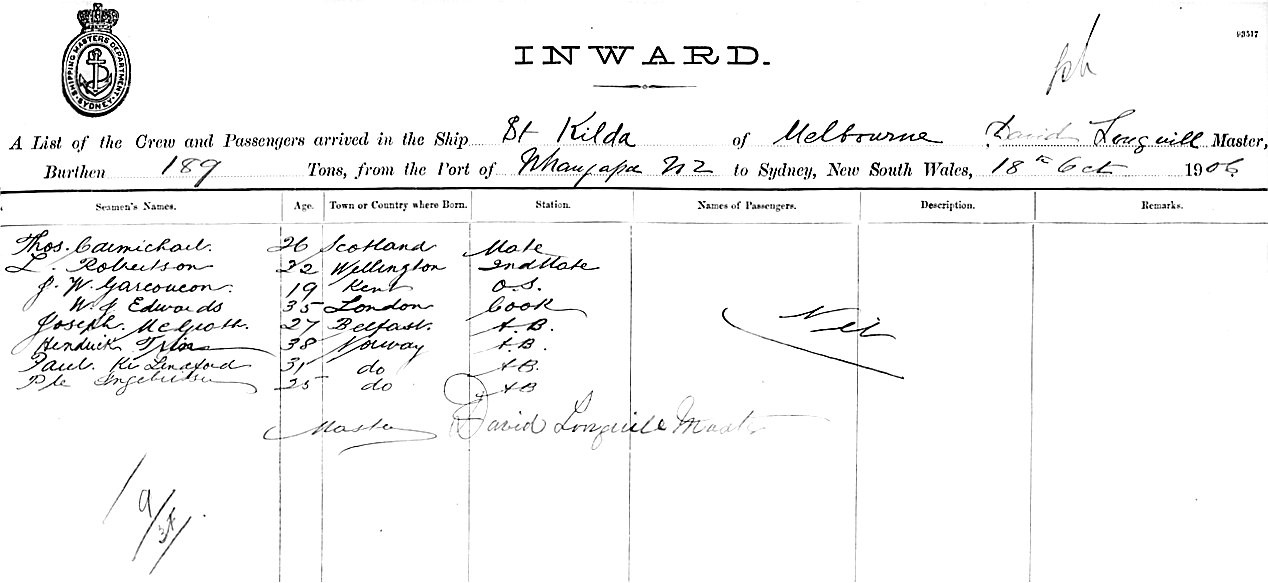 SHIPPING MASTERS DEPARTMENT
SYDNEY
93517
INWARD.
A List of the Crew and Passengers arrived in the Ship St Kilda of Melbourne David Longuill Master,
Burthen 189 Tons, from the Port of Whangapa NZ to Sydney, New South Wales, 18th Oct 1906
Seamen's Names. Age. Town or Country where Born. Station. Names of Passengers. Description. Remarks.
Thos. Carmichael. 26 Scotland Mate
L. Robertson 22 Wellington 2nd Mate
J. W. 19 Kent O.S.
W. J. Edwards 35 London Cook
Joseph. McGrath. 27 Belfast. A.B.
Hendrick 38 Norway A.B.
Paul. 31 do A.B.
25 do AB
Nil
Master David Longuill Master